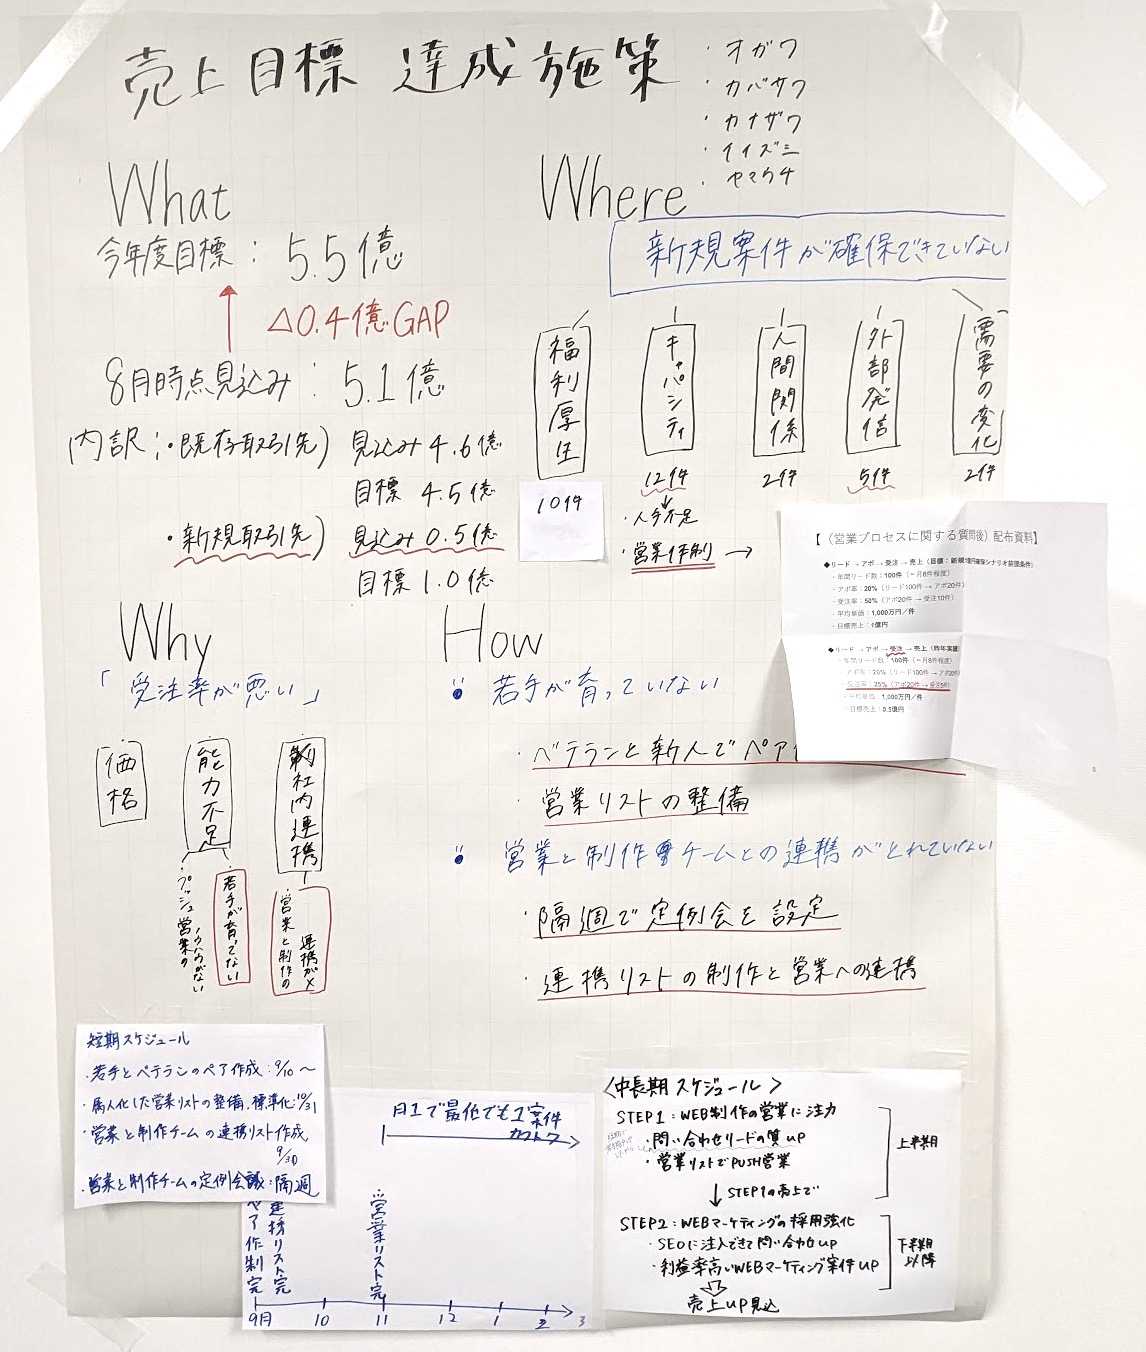 売上目標 達成施策
・オガワ
・カバサワ
・カナザワ
・イイズミ
・ヤマウチ
What
今年度目標: 5.5億
△0.4億GAP
8月時点見込み: 5.1億
内訳;・既存取引先) 見込み4.6億
目標 4.5億
・新規取引先) 見込み0.5億
目標1.0億
Where
新規案件が確保できていない
福利厚生
10件
キャパシティ
12件
・人手不足
・営業体制 →
人間関係
2件
外部発信
5件
需要の変化
2件
【(営業プロセスに関する質問後)配布資料】
◆リード → アポ → 受注 → 売上(目標:新規1億円確保シナリオ前提条件)
・年間リード数:100件(一月8件程度)
・アポ率:20%(リード100件 → アポ20件)
・受注率:50%(アポ20件 → 受注10件)
・平均単価:1,000万円/件
・目標売上:1億円
◆リード → アポ → 受注 → 売上(昨年実績
・年間リード数:100件(一月8件程度)
・アポ率:20%(リード100件 → アポ20件)
・受注率:25%(アポ20件 → 受注5件)
・平均単価:1,000万円/件
・目標売上:0.5億円
Why
「受注率が悪い」
価格
能力不足
・若手が育ってない
・プッシュ営業のノウハウがない
社内連携
・営業と制作の連携が×
How
若手が育っていない
・ベテランと新人でペア
・営業リストの整備
営業と制作チームとの連携がとれていない
・隔週で定例会を設定
・連携リストの制作と営業への連携
短期スケジュール
・若手とベテランのペア作成:9/10〜
・属人化した営業リストの整備、標準化:10/31
・営業と制作チームの連携リスト作成,
9/30
・営業と制作チームの定例会議:隔週
月1で最低でも1案件
カクトク
ペア作制完
連携リスト完
営業リスト完
9月 10 11 12 1 2 3
<中長期スケジュール>
STEP1:WEB制作の営業に注力
・問い合わせリードの質UP
・営業リストでPUSH営業
上半期
↓STEP1の売上で
STEP2:WEBマーケティングの採用強化
・SEOに注入できて問い合わUP
・利益率高いWEBマーケティング案件UP
下半期以降
売上UP見込